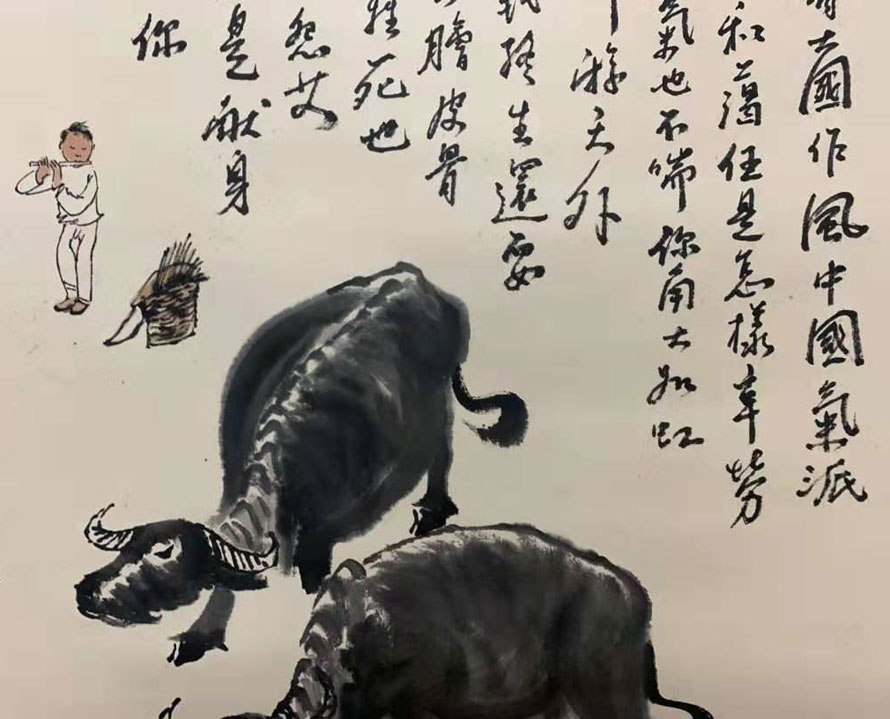 有大國作風中國氣派
和藹任是怎樣辛勞
氣也不喘你角大如虹
游天外
載終生還要
膾皮骨
牲死也
怨艾
是献身
你